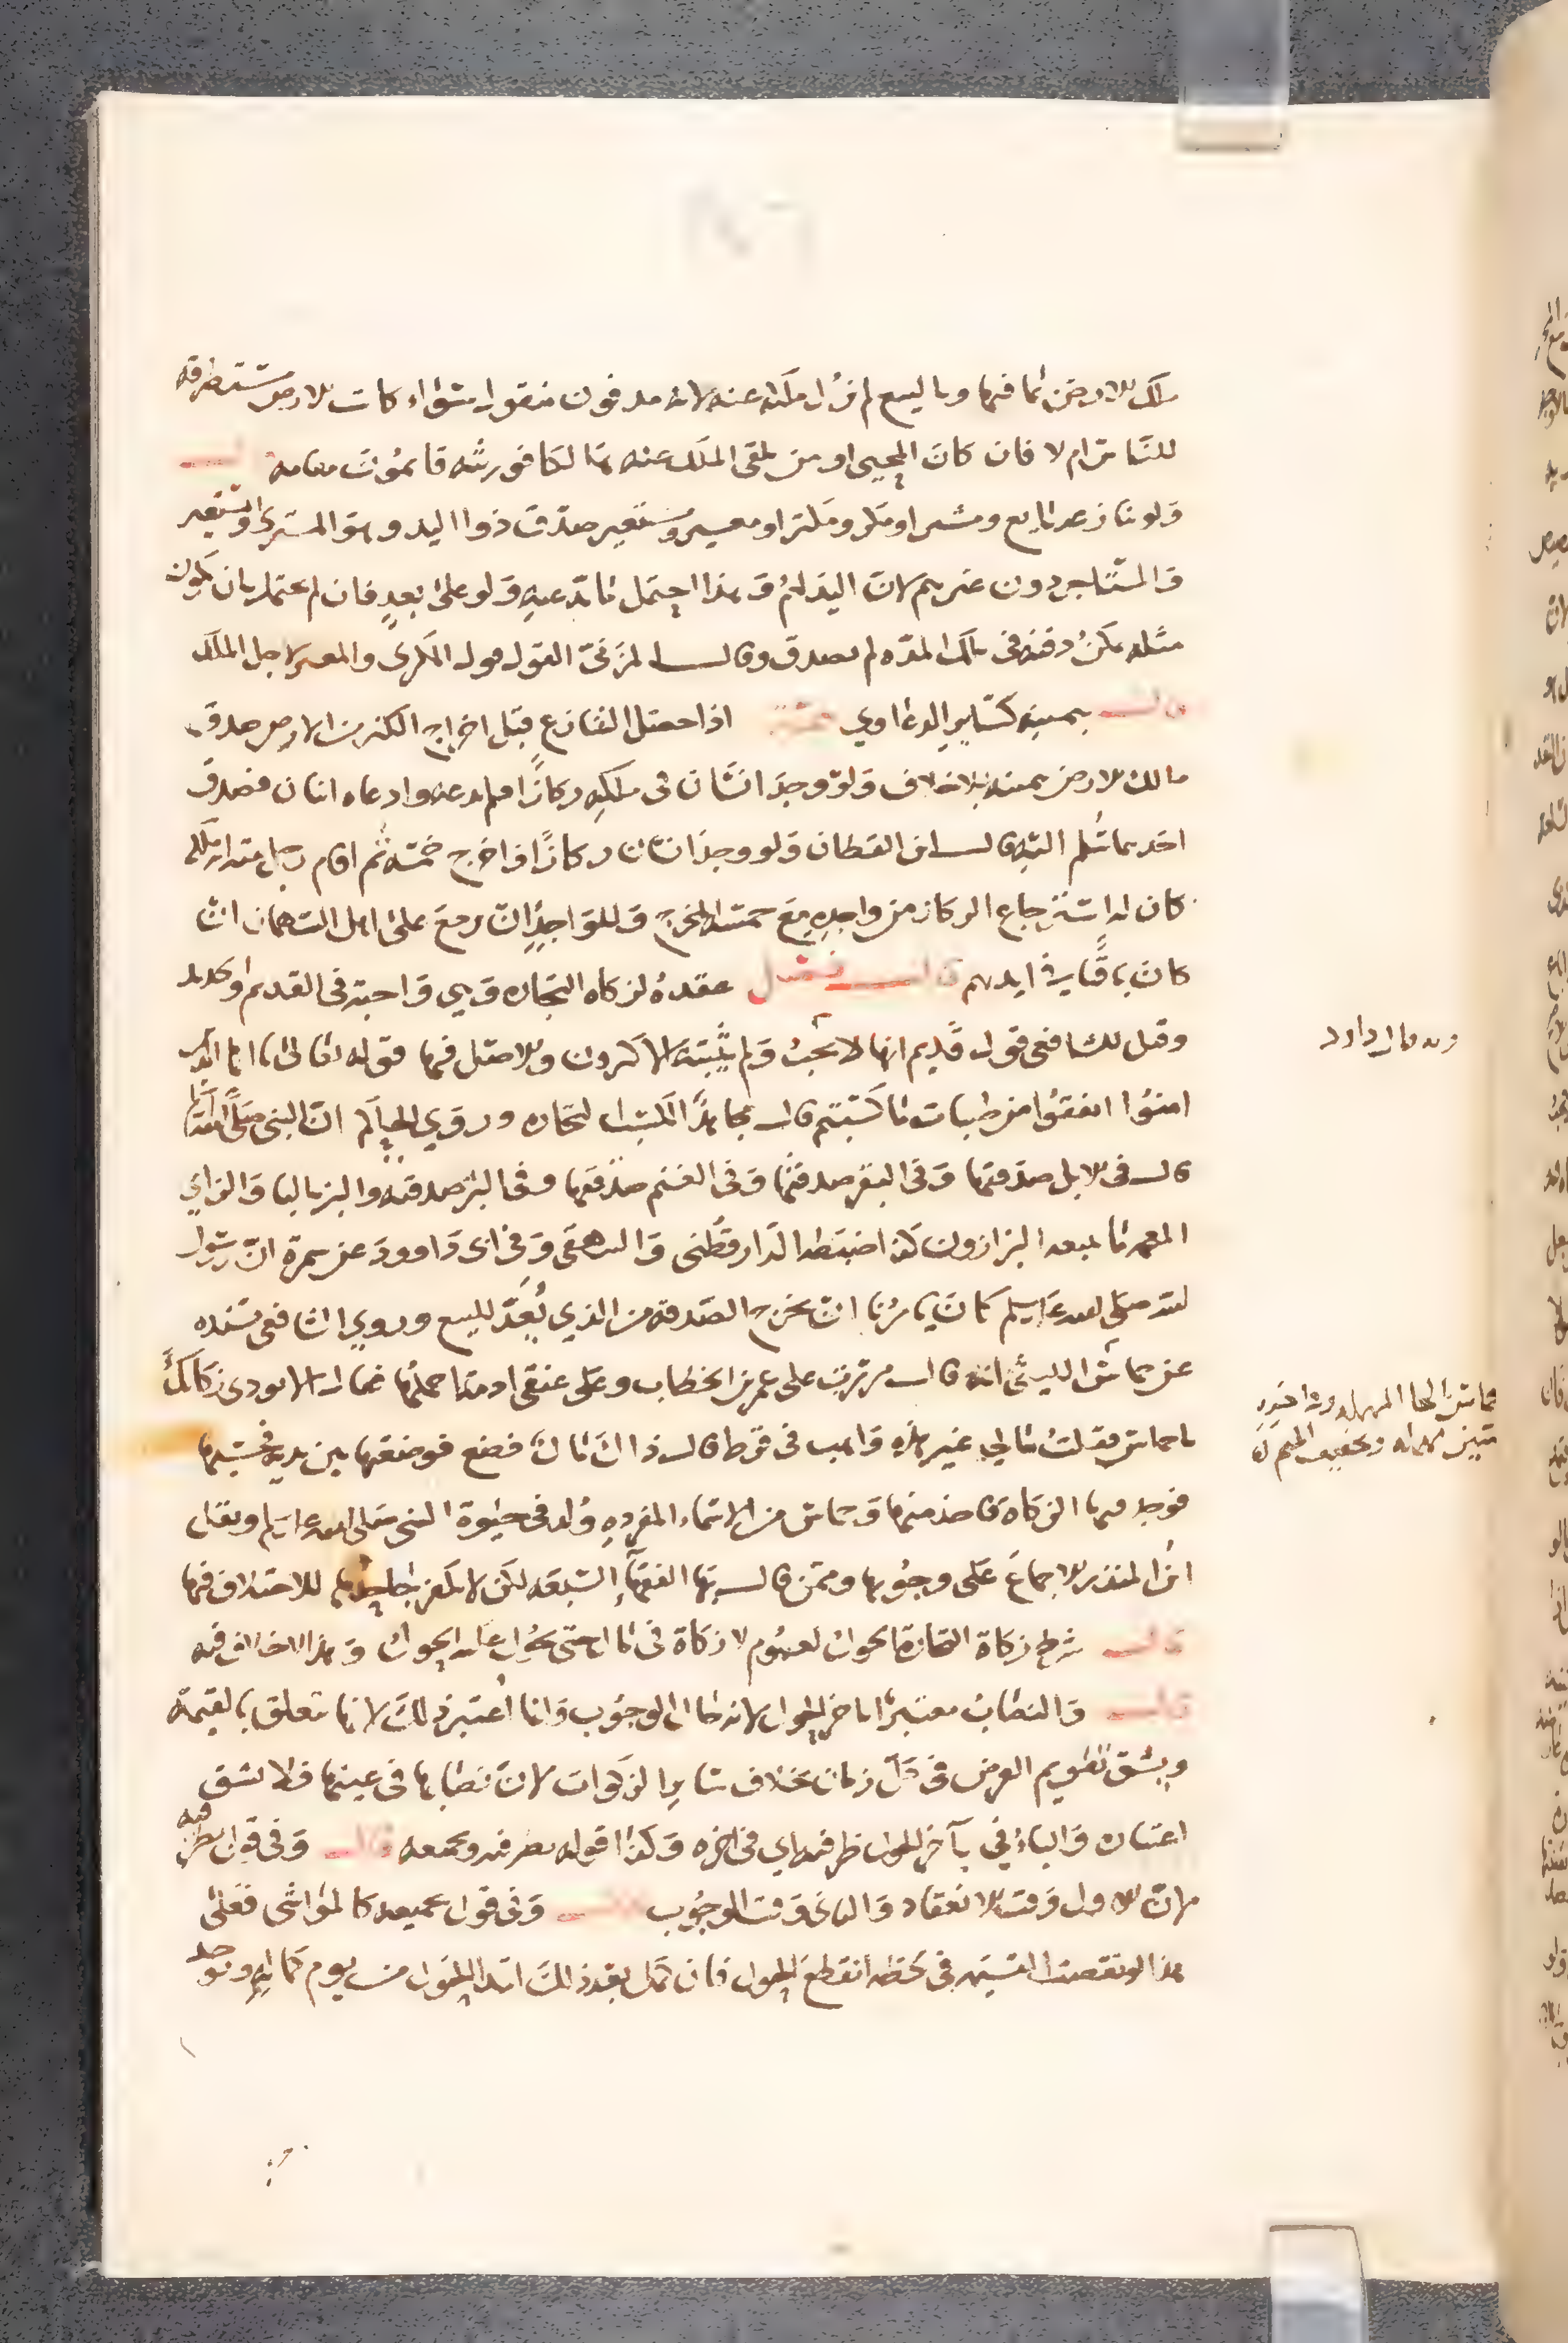 ملك الارض بما فيها وبالبيع لم يزل ملكه عنه لانه مدفون منقول سواء كانت الارض مستطرقة
للناس ام لا فان كان المحيي او من تلقى الملك عنه هالكا فورثته قائمون مقامه قال
ولو تنازعه بايع ومشتر او مكر ومكتر او معير ومستعير صدق ذوا اليد وهو المشتري والمستعير
والمستاجر دون غيرهم لان اليد لهم وهذا احتمل ما يدعيه ولو على بعد فان لم يحتمل بان يكون
مثله يمكن دفنه في تلك المدة لم يصدق وقال المزني القول قول المكري والمعير لاجل الملك
قال بيمينه كساير الدعاوي اذا حصل التنازع قبل اخراج الكنز من الارض صدق
مالك الارض بيمينه بلا خلاف ولو وجد انسان في ملكه ركازا فلم يدعه وادعاه اثنان فصدق
احدهما سلم اليه قال ابن القطان ولو وجد انسان ركازا فاخرج خمسه ثم اقام رجل بينه انه ملكه
كان له استرجاع الركاز من واجده مع خمسه المخرج وللواجد ان يرجع على اهل السهمان ان
كان باقيا في ايديهم قال فصل عقده لزكاه التجاره وهي واجبة في القديم والجديد
وقيل للشافعي قول قديم انها لا تجب ولم يثبته الاكثرون والاصل فيها قوله تعالى يا ايها الذين
امنوا انفقوا من طيبات ما كسبتم قال مجاهد المكتسب التجاره وروي الحاكم ان النبي صلى الله
قال في الابل صدقتها وفي البقر صدقتها وفي الغنم صدقتها وفي البز صدقته والبز بالبا والزاي
المعجمه ما يبيعه البزازون كذا ضبطه الدارقطني والبيهقي وفي ابي داوود عن سمرة ان رسول
الله صلى الله عليه وسلم كان يامرنا ان نخرج الصدقه من الذي نعد للبيع وروي الشافعي بسنده
عن حماس الليثي انه قال مررت على عمر بن الخطاب وعلى عنقي ادمة احملها فقال الا تودي زكاتك
يا حماس فقلت مالي غير هذه واهب في قرظ قال ذاك مال فضع فوضعتها بين يديه فحسبها
فوجد فيها الزكاة فاخذ منها وحماس من الاسماء المفرده ولد في حيوة النبي صلى الله عليه وسلم ونقل
ابن المنذر الاجماع على وجوبها وممن قال بها الفقهاء السبعه لكن لا يكفر جاحدها للاختلاف فيها
قال شرط زكاة التجارة الحول لعموم لا زكاة في مال حتى يحول عليه الحول وهذا لا خلاف فيه
قال والنصاب معتبرا باخر الحول لانه حال الوجوب وانما اعتبر ذلك لانها تتعلق بالقيمة
ويشق تقويم العرض في كل زمان بخلاف ساير الزكوات لان نصابها في عينها فلا يشق
اعتباره والباء في بآخر الحول ظرفيه اي في اخره وكذا قوله بطرفيه وبجميعه قال وفي قول بطرفيه
لان الاول وقت الانعقاد والثاني وقت الوجوب قال وفي قول بجميعه كالمواشي فعلى
هذا لو نقصت القيمة في لحظه انقطع الحول فان كمل بعد ذلك ابتدا الحول من يوم كماله
وبه قال داود
حماس بالحا المهمله
سين مهمله وتخفيف الميم